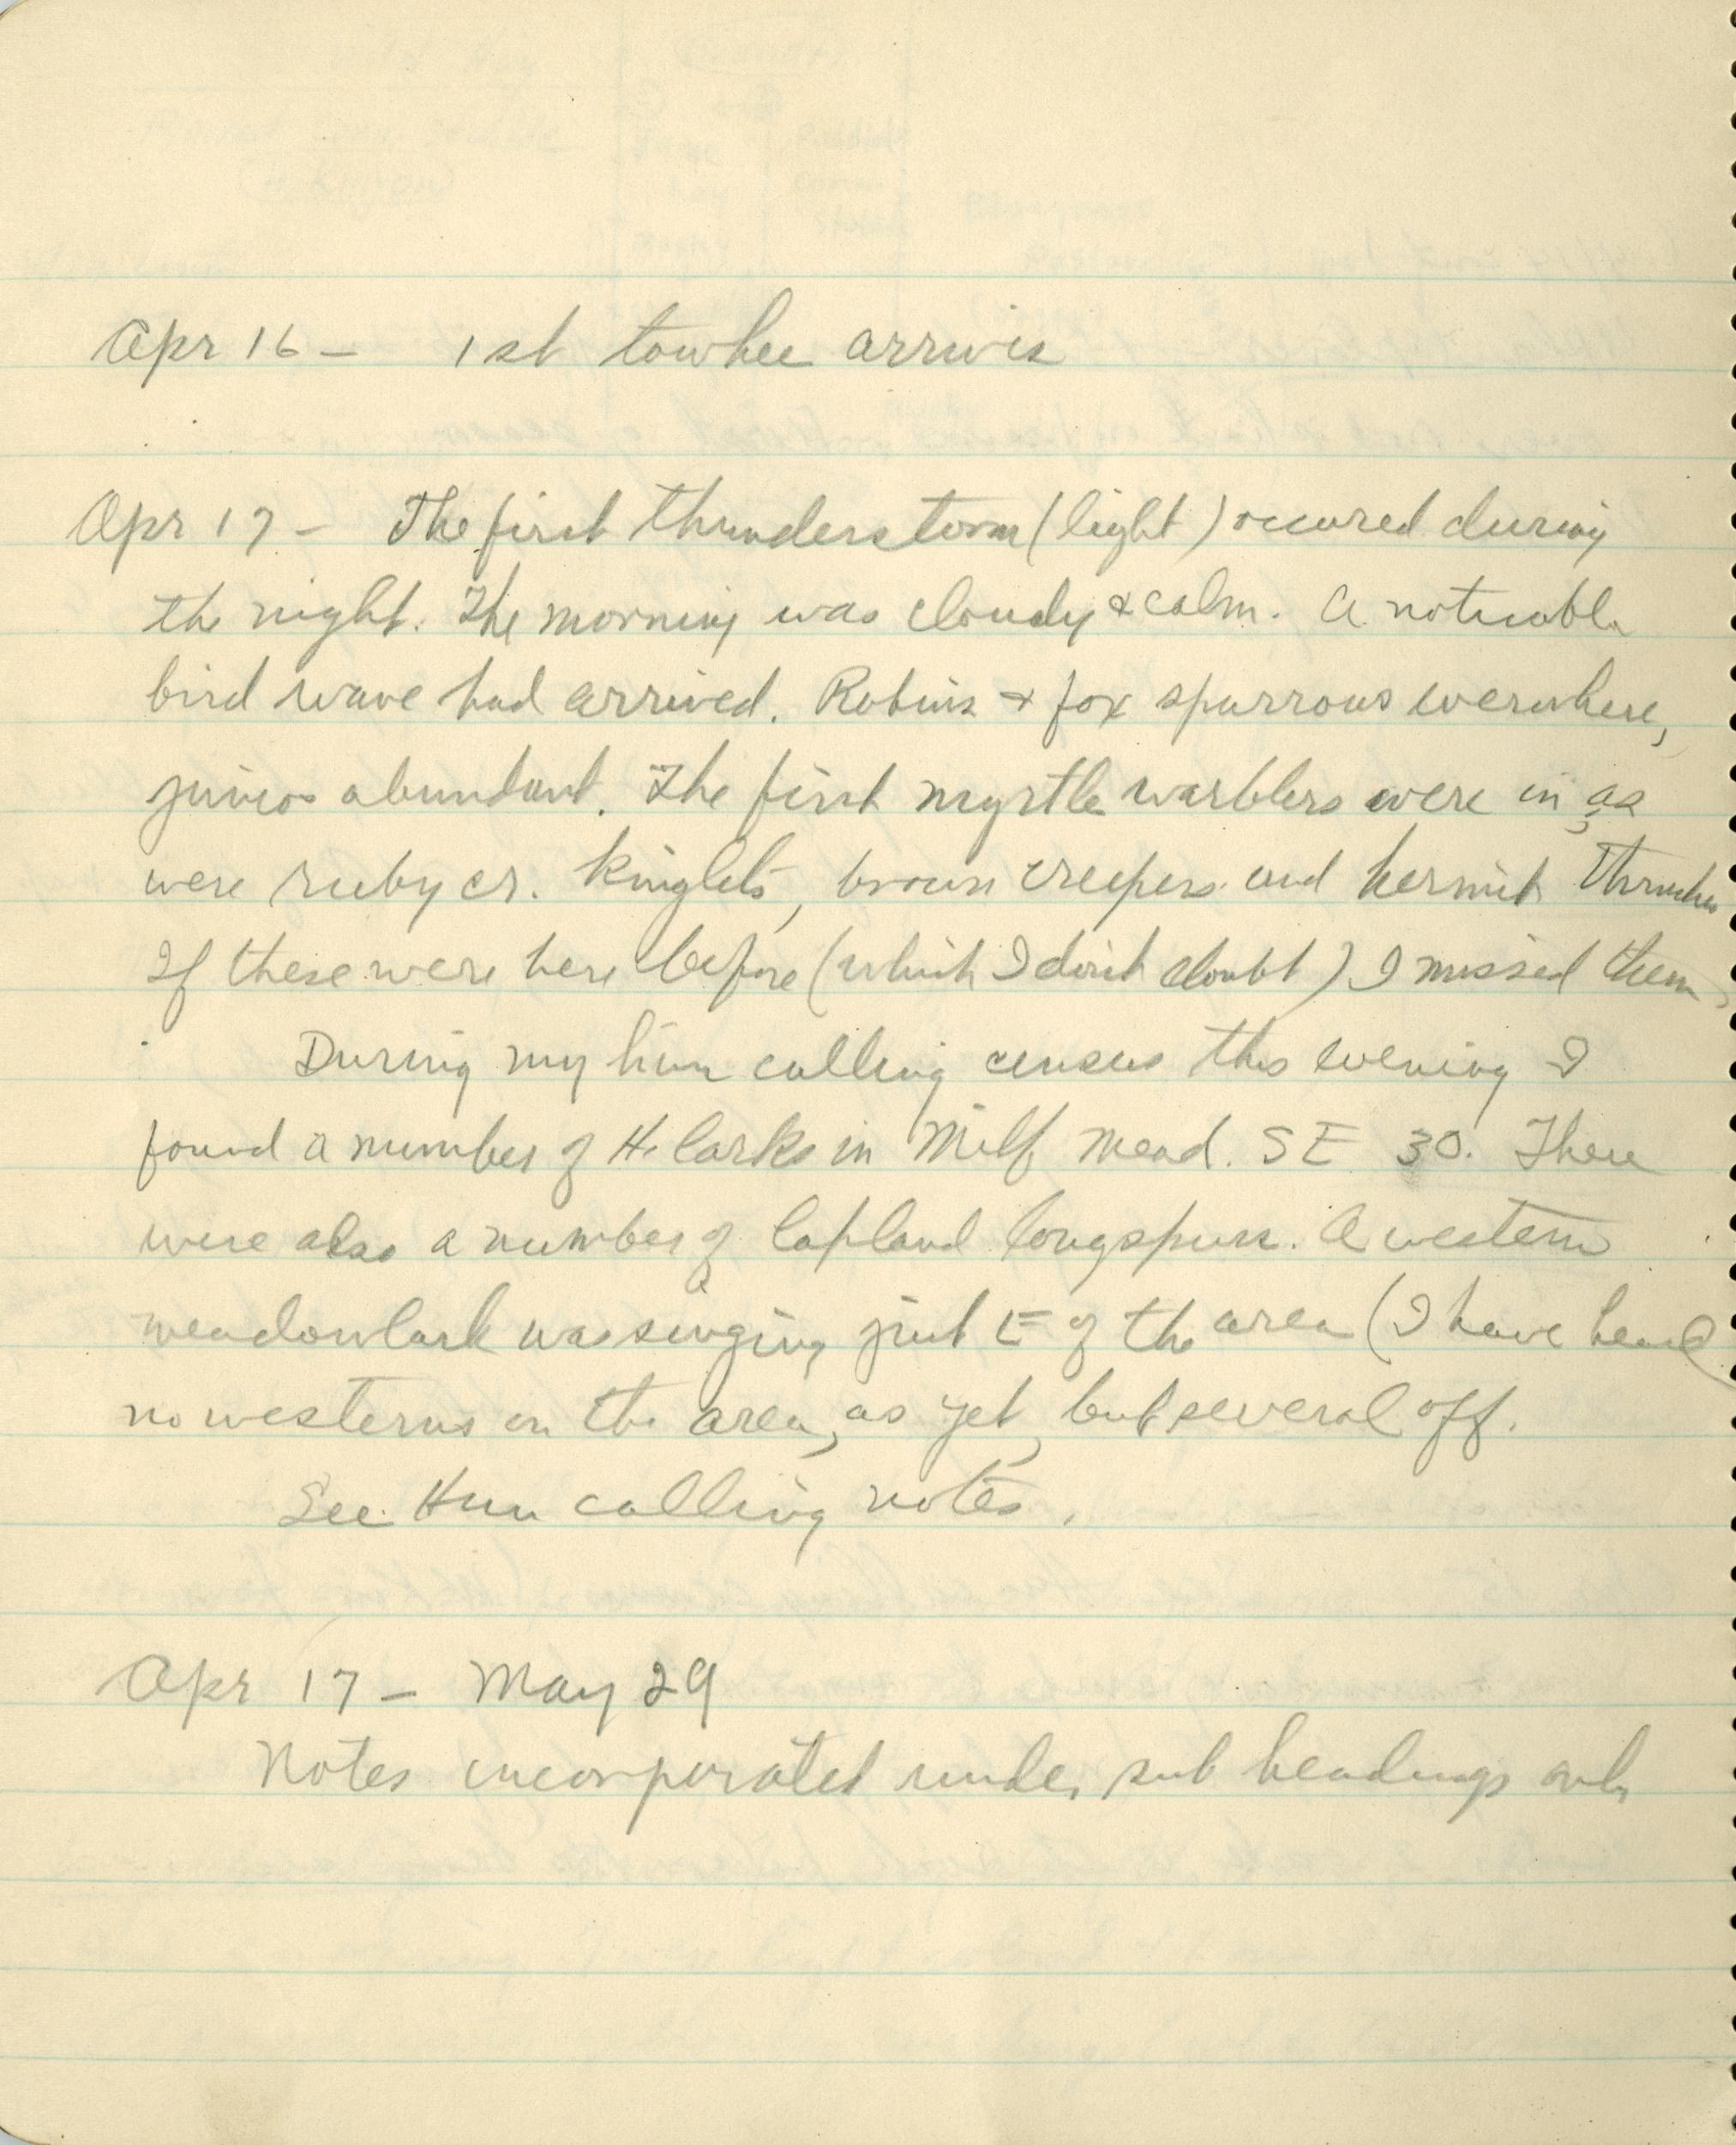 Apr 16 - 1st towhee arrives
Apr 17 - The first thunderstorm (light) occured during
the night. The morning was cloudy & calm. A noticable
bird wave had arrived. Robins & fox sparrows everwhere,
juncos abundant. The first myrtle warblers were in, as
were ruby cr. kinglets, brown creepers and hermit thrushes
If these were here before (which I don't doubt) I missed them.
During my hun calling census this evening I
found a number of H. larks in Milf. Mead. SE 30. There
were also a number of lapland longspurs. A western
meadowlark was singing just E of the area (I have heard
no westerns on the area, as yet, but several off.
See Hun calling notes.
Apr 17 - May 29
Notes incorporated under sub headings only